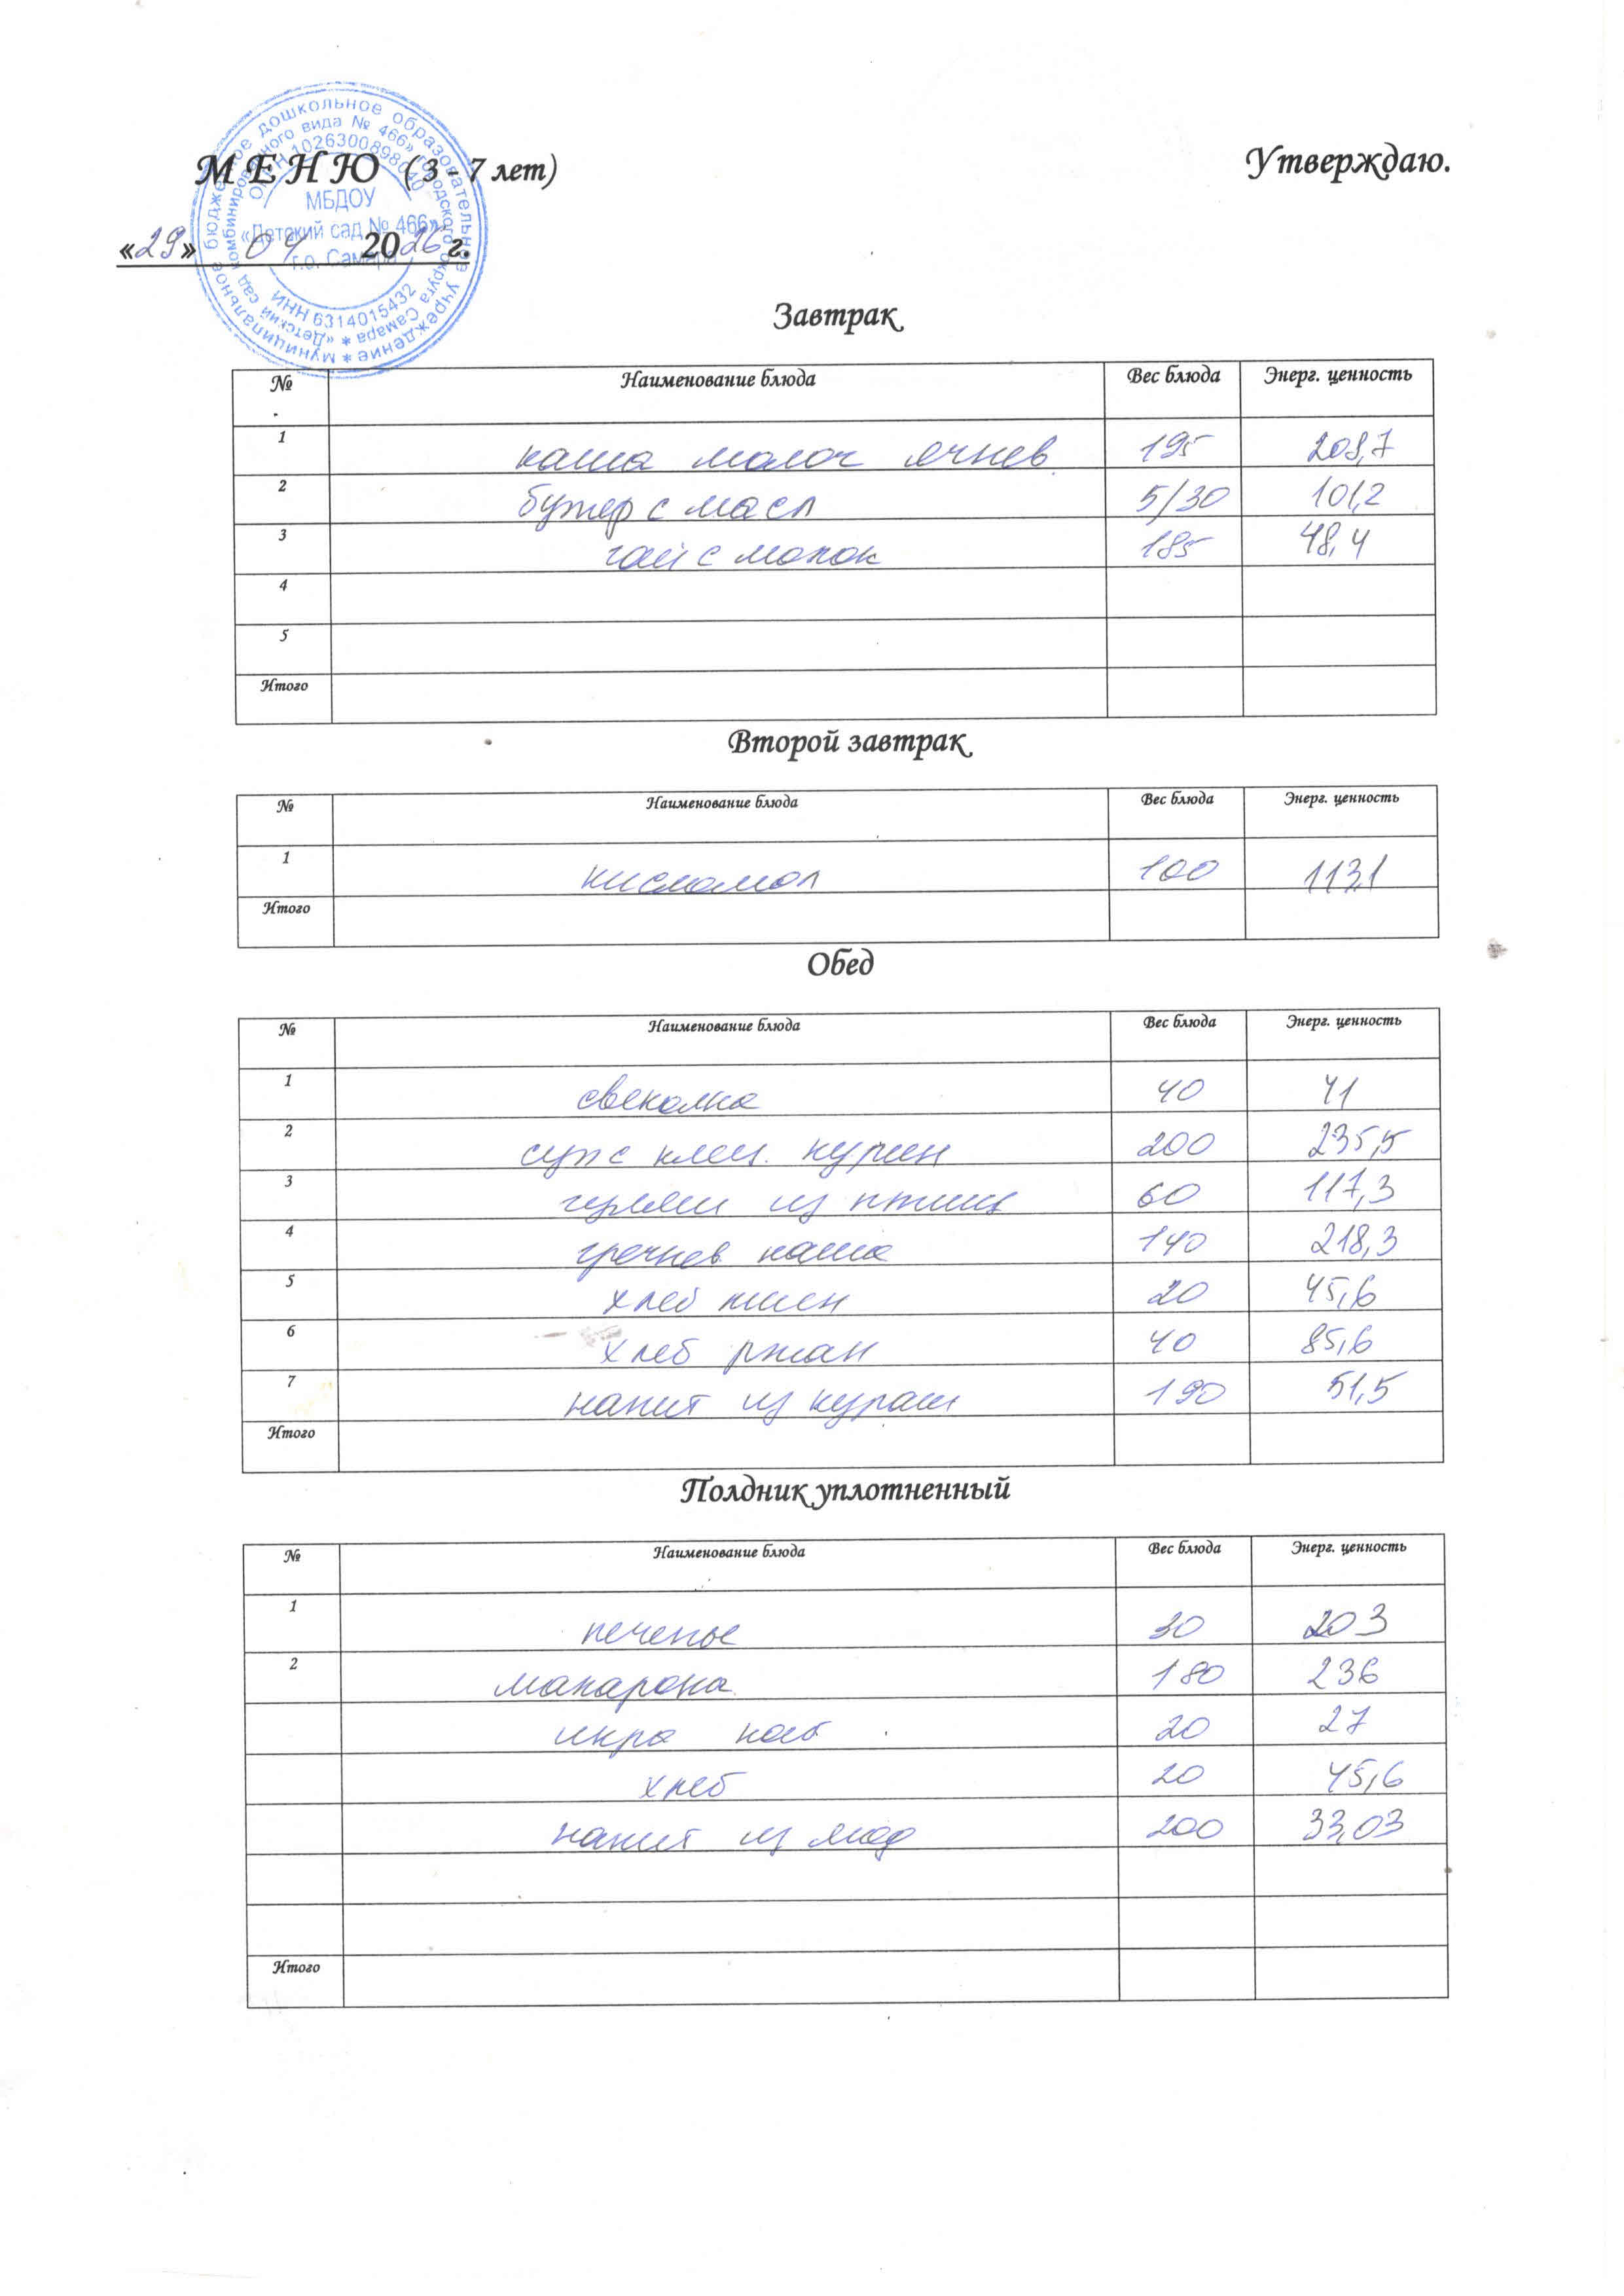 МЕНЮ (3 - 7 лет)
Утверждаю.
«29» 04 2026 г.
муниципальное бюджетное дошкольное образовательное учреждение *
«Детский сад комбинированного вида № 466» городского округа Самара *
ОГРН 1026300898040
МБДОУ
«Детский сад № 466»
г.о. Самара
ИНН 6314015432
Завтрак
№ Наименование блюда Вес блюда Энерг. ценность
1 каша молоч ячнев 195 208,7
2 бутер с масл 5/30 101,2
3 чай с молок 185 48,4
4
5
Итого
Второй завтрак
№ Наименование блюда Вес блюда Энерг. ценность
1 кисломол 100 113,1
Итого
Обед
№ Наименование блюда Вес блюда Энерг. ценность
1 свеколка 40 41
2 суп с клец. курин 200 235,5
3 из птиц 60 117,3
4 гречнев каша 140 218,3
5 хлеб пшен 20 45,6
6 хлеб ржан 40 85,6
7 напит из кураги 190 51,5
Итого
Полдник уплотненный
№ Наименование блюда Вес блюда Энерг. ценность
1 печенье 30 203
2 макарона 180 236
икра каб 20 27
хлеб 20 45,6
напит из 200 33,03
Итого